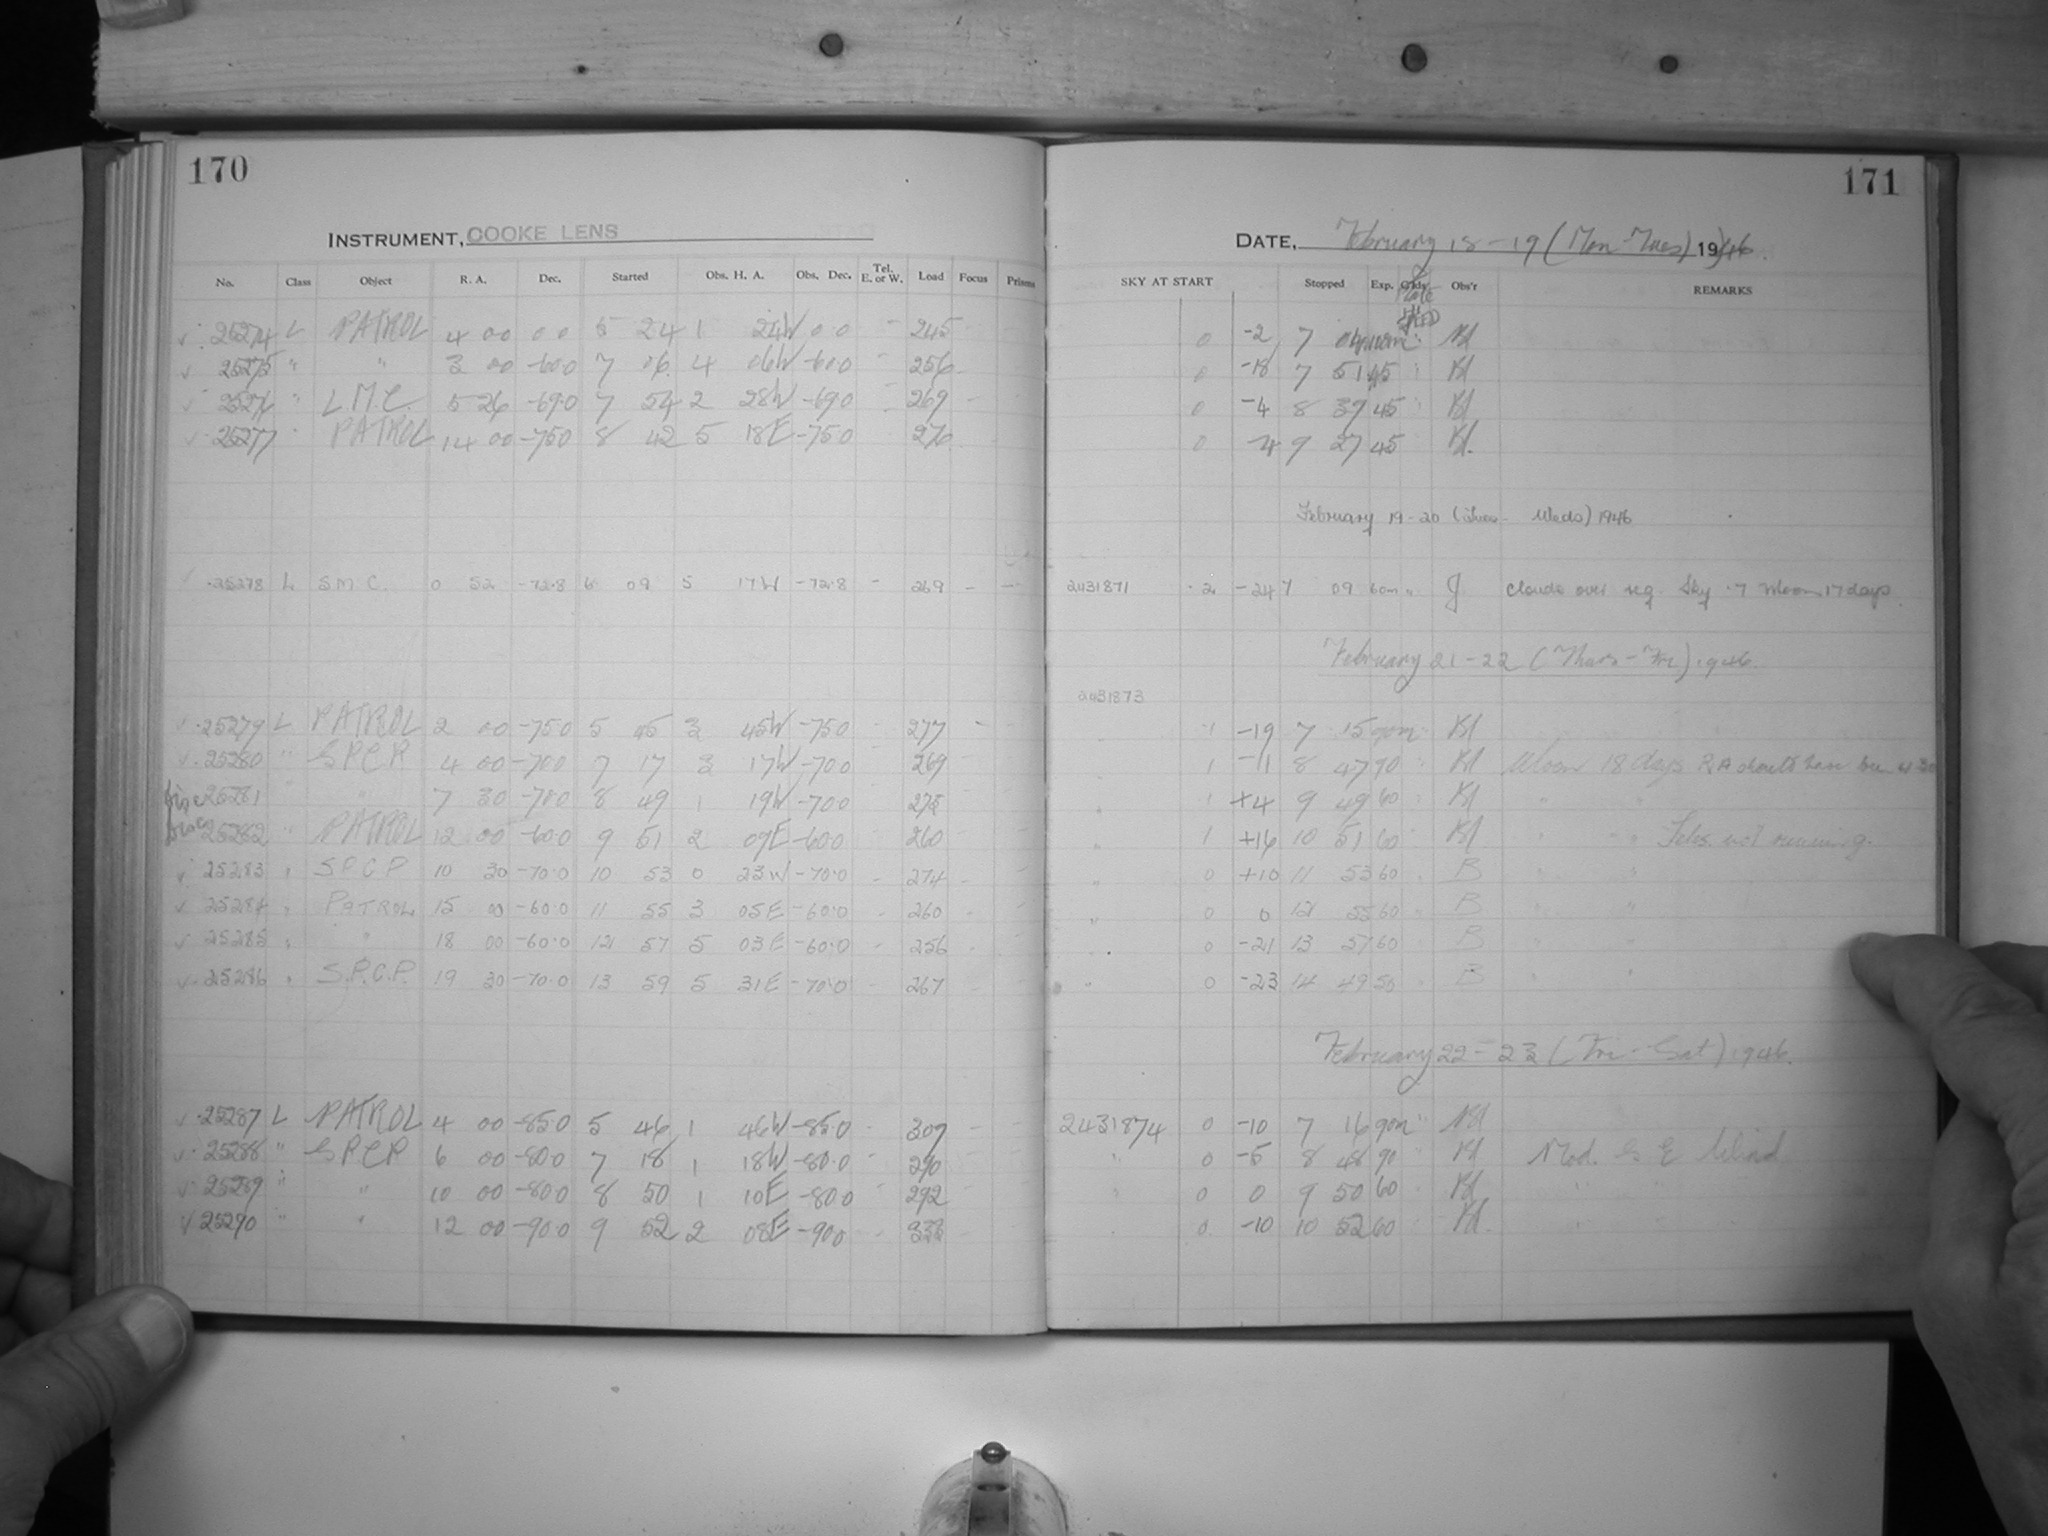 170
INSTRUMENT, COOKE LENS
No. Class Object R. A. Dec. Started Obs. H. A. Obs. Dec. Tel. E. or W. Load Focus Prisms
25274 L PATROL 4 00 00 5 24 1 24W 00 - 245
25275 " " 3 00 -60.0 7 06 4 06W -60.0 - 256
25276 " L.M.C. 5 26 -69.0 7 54 2 28W -69.0 - 269
25277 " PATROL 14 00 -75.0 8 42 5 18E -75.0 - 276
25278 L S.M.C. 0 52 -72.8 6 09 5 17W -72.8 - 269 - -
25279 L PATROL 2 00 -75.0 5 45 3 45W -75.0 - 277 -
25280 " S.P.C.P. 4 00 -70.0 7 17 3 17W -70.0 - 269
25281 " " 7 30 -70.0 8 49 1 19W -70.0 - 275
25282 " PATROL 12 00 -60.0 9 51 2 09E -60.0 - 260
25283 " S.P.C.P. 10 30 -70.0 10 53 0 23W -70.0 - 274
25284 " PATROL 15 00 -60.0 11 55 3 05E -60.0 - 260
25285 " " 18 00 -60.0 12 57 5 03E -60.0 - 256
25286 " S.P.C.P. 19 30 -70.0 13 59 5 31E -70.0 - 267
25287 L PATROL 4 00 -85.0 5 46 1 46W -85.0 - 307
25288 " S.P.C.P. 6 00 -80.0 7 18 1 18W -80.0 - 290
25289 " " 10 00 -80.0 8 50 1 10E -80.0 - 292
25290 " " 12 00 -90.0 9 52 2 08E -90.0 - 333
171
DATE, February 18-19 (Mon-Tues) 1946.
SKY AT START Stopped Exp. Plate Obs'r REMARKS
0 -2 7 04 Bl
0 -18 7 51 45 " Bl
0 -4 8 39 45 " Bl
0 -4 9 27 45 Bl.
February 19-20 (Tues - Weds) 1946
2431871 .2 -24 7 09 60m " J Clouds over reg. Sky .7 Moon 17 days.
February 21-22 (Thurs-Fri) 1946.
2431873
1 -19 7 15 90m " Bl
" 1 -11 8 47 90 " Bl Moon 18 days RA should have been 4 30
" 1 +4 9 49 60 " Bl " "
" 1 +16 10 51 60 " Bl " " Teles. not running.
" 0 +10 11 53 60 " B " "
" 0 0 12 55 60 " B " "
" 0 -21 13 57 60 " B " "
" 0 -23 14 49 50 " B " "
February 22-23 (Fri-Sat) 1946.
2431874 0 -10 7 16 90m " Bl
" 0 -5 8 48 90 " Bl Mod. S E Wind
" 0 0 9 50 60 " Bl " "
0 -10 10 52 60 " Bl. "